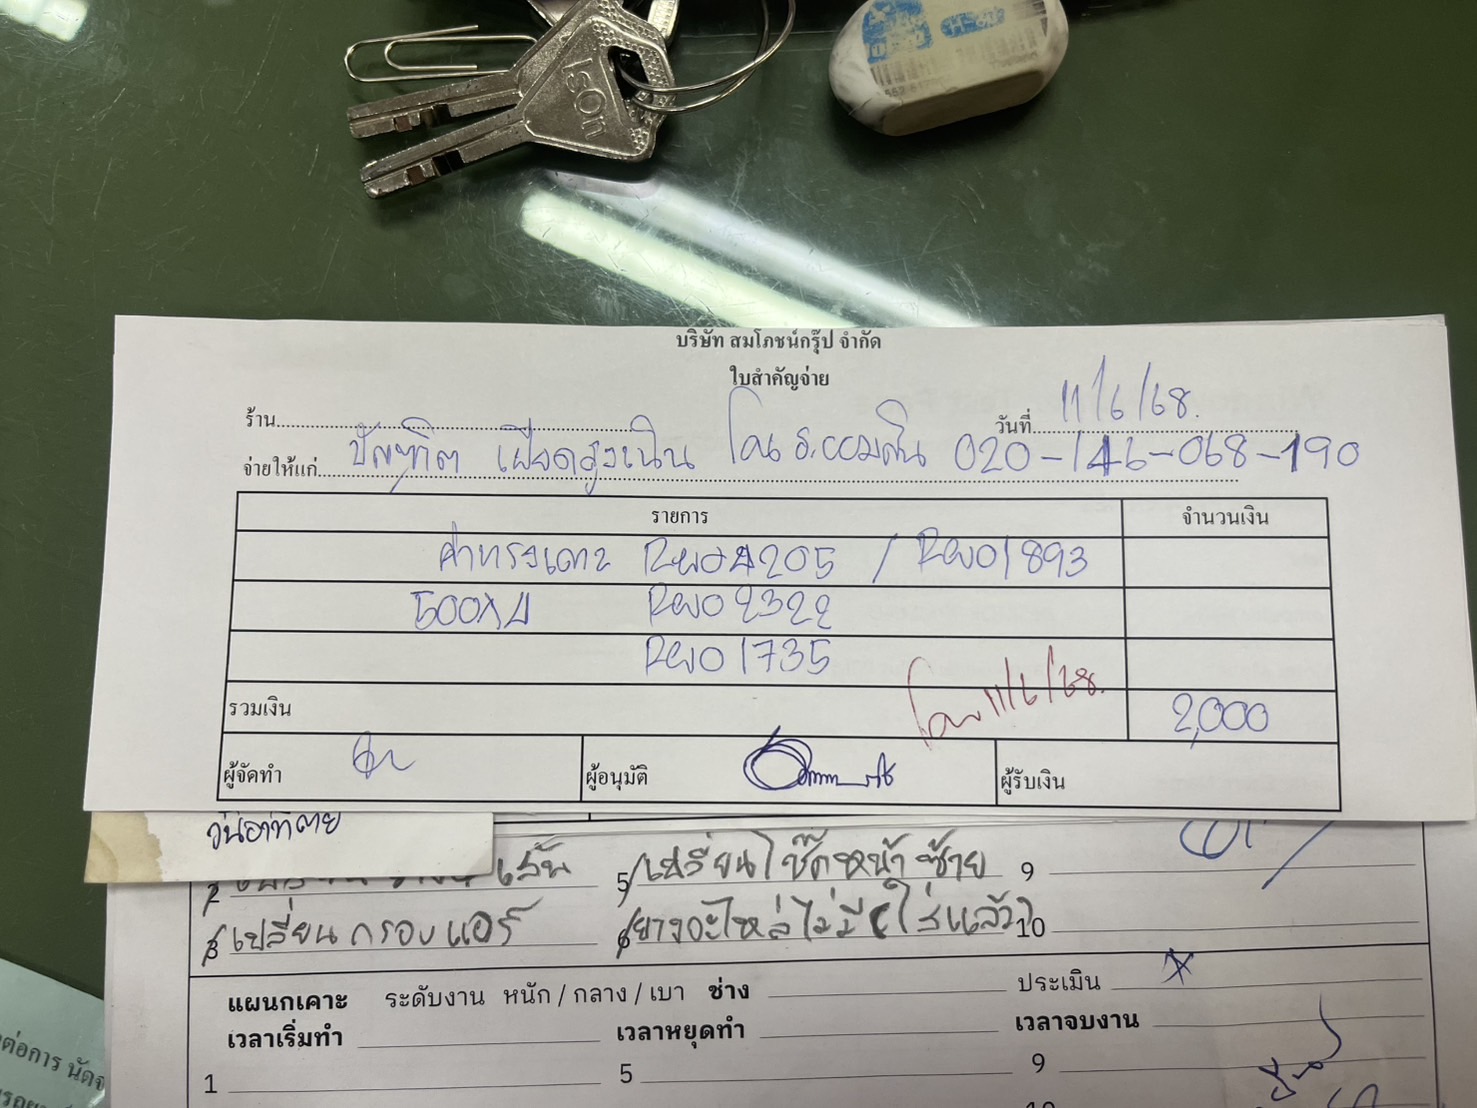 ISON
บริษัท สมโภชน์กรุ๊ป จำกัด
ใบสำคัญจ่าย
ร้าน
วันที่ 11/6/68.
จ่ายให้แก่ บัณฑิต เฝียดสูงเนิน โอน ธ.ออมสิน 020-146-068-190
รายการ จำนวนเงิน
ค่าทรงเคาะ Revo4205 / Revo1893
500x4 Revo2322
Revo1735
โอน 11/6/68.
รวมเงิน 2,000
ผู้จัดทำ ผู้อนุมัติ ผู้รับเงิน
วันอาทิตย์
2 เส้น 5 เปลี่ยนโช๊คหน้าซ้าย 9
3 เปลี่ยนกรองแอร์ 6 ยางอะไหล่ไม่มี (ใส่แล้ว) 10
แผนกเคาะ ระดับงาน หนัก / กลาง / เบา ช่าง ประเมิน
เวลาเริ่มทำ เวลาหยุดทำ เวลาจบงาน
1 5 9
10
ต่อการ นัด